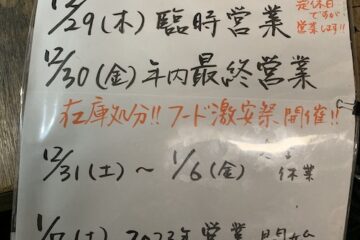 12/29(木)臨時営業
定休日
ですが
営業します!!
12/30(金)年内最終営業
在庫処分!!フード激安祭開催!!
12/31(土)〜1/6(金)
休業
1/7(土)2023年営業開始